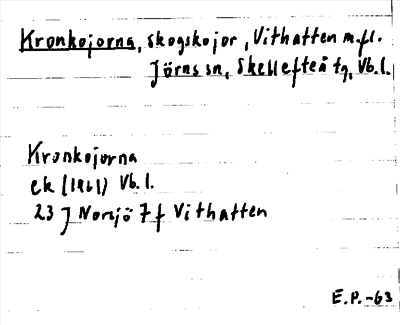 Kronkojorna, skogskojor, Vithatten m.fl.
Jörns sn, Skellefteå tg, Vb. l.
Kronkojorna
ek (1961) Vb. l.
23 J Norsjö 7 f Vithatten
E.P.-63